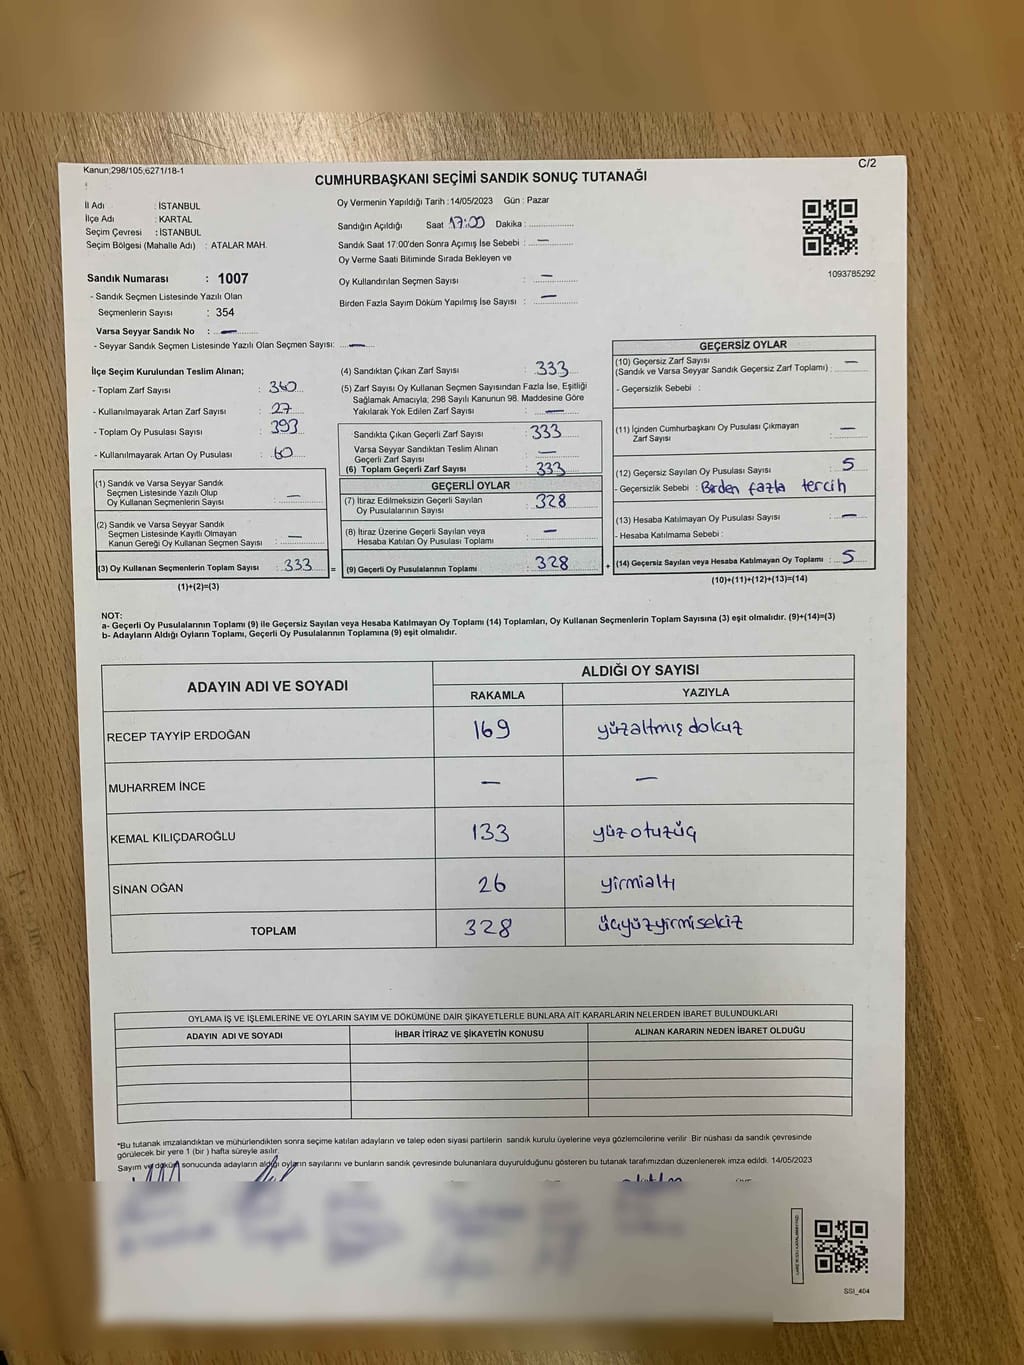 Kanun;298/105;6271/18-1
C/2
CUMHURBAŞKANI SEÇİMİ SANDIK SONUÇ TUTANAĞI
İl Adı : İSTANBUL
İlçe Adı : KARTAL
Seçim Çevresi : İSTANBUL
Seçim Bölgesi (Mahalle Adı) : ATALAR MAH.
Sandık Numarası : 1007
- Sandık Seçmen Listesinde Yazılı Olan
Seçmenlerin Sayısı : 354
Varsa Seyyar Sandık No : —
- Seyyar Sandık Seçmen Listesinde Yazılı Olan Seçmen Sayısı: —
Oy Vermenin Yapıldığı Tarih : 14/05/2023 Gün : Pazar
Sandığın Açıldığı Saat 17:00 Dakika :
Sandık Saat 17:00'den Sonra Açımış İse Sebebi : —
Oy Verme Saati Bitiminde Sırada Bekleyen ve
Oy Kullandırılan Seçmen Sayısı : —
Birden Fazla Sayım Döküm Yapılmış İse Sayısı : —
1093785292
İlçe Seçim Kurulundan Teslim Alınan;
- Toplam Zarf Sayısı : 360
- Kullanılmayarak Artan Zarf Sayısı : 27
- Toplam Oy Pusulası Sayısı : 393
- Kullanılmayarak Artan Oy Pusulası : 60
(1) Sandık ve Varsa Seyyar Sandık
Seçmen Listesinde Yazılı Olup
Oy Kullanan Seçmenlerin Sayısı : —
(2) Sandık ve Varsa Seyyar Sandık
Seçmen Listesinde Kayıtlı Olmayan
Kanun Gereği Oy Kullanan Seçmen Sayısı : —
(3) Oy Kullanan Seçmenlerin Toplam Sayısı : 333 =
(1)+(2)=(3)
(4) Sandıktan Çıkan Zarf Sayısı : 333
(5) Zarf Sayısı Oy Kullanan Seçmen Sayısından Fazla İse, Eşitliği
Sağlamak Amacıyla; 298 Sayılı Kanunun 98. Maddesine Göre
Yakılarak Yok Edilen Zarf Sayısı : —
Sandıkta Çıkan Geçerli Zarf Sayısı : 333
Varsa Seyyar Sandıktan Teslim Alınan
Geçerli Zarf Sayısı : —
(6) Toplam Geçerli Zarf Sayısı : 333
GEÇERLİ OYLAR
(7) İtiraz Edilmeksizin Geçerli Sayılan
Oy Pusulalarının Sayısı : 328
(8) İtiraz Üzerine Geçerli Sayılan veya
Hesaba Katılan Oy Pusulası Toplamı : —
(9) Geçerli Oy Pusulalarının Toplamı : 328 +
GEÇERSİZ OYLAR
(10) Geçersiz Zarf Sayısı
(Sandık ve Varsa Seyyar Sandık Geçersiz Zarf Toplamı) : —
- Geçersizlik Sebebi :
(11) İçinden Cumhurbaşkanı Oy Pusulası Çıkmayan
Zarf Sayısı : —
(12) Geçersiz Sayılan Oy Pusulası Sayısı : 5
- Geçersizlik Sebebi : Birden fazla tercih
(13) Hesaba Katılmayan Oy Pusulası Sayısı : —
- Hesaba Katılmama Sebebi :
(14) Geçersiz Sayılan veya Hesaba Katılmayan Oy Toplamı : 5
(10)+(11)+(12)+(13)=(14)
NOT:
a- Geçerli Oy Pusulalarının Toplamı (9) ile Geçersiz Sayılan veya Hesaba Katılmayan Oy Toplamı (14) Toplamları, Oy Kullanan Seçmenlerin Toplam Sayısına (3) eşit olmalıdır. (9)+(14)=(3)
b- Adayların Aldığı Oyların Toplamı, Geçerli Oy Pusulalarının Toplamına (9) eşit olmalıdır.
ADAYIN ADI VE SOYADI
ALDIĞI OY SAYISI
RAKAMLA YAZIYLA
RECEP TAYYİP ERDOĞAN 169 yüzaltmış dokuz
MUHARREM İNCE — —
KEMAL KILIÇDAROĞLU 133 yüzotuzüç
SİNAN OĞAN 26 yirmialtı
TOPLAM 328 üçyüzyirmisekiz
OYLAMA İŞ VE İŞLEMLERİNE VE OYLARIN SAYIM VE DÖKÜMÜNE DAİR ŞİKAYETLERLE BUNLARA AİT KARARLARIN NELERDEN İBARET BULUNDUKLARI
ADAYIN ADI VE SOYADI İHBAR İTİRAZ VE ŞİKAYETİN KONUSU ALINAN KARARIN NEDEN İBARET OLDUĞU
*Bu tutanak imzalandıktan ve mühürlendikten sonra seçime katılan adayların ve talep eden siyasi partilerin sandık kurulu üyelerine veya gözlemcilerine verilir Bir nüshası da sandık çevresinde
görülecek bir yere 1 (bir ) hafta süreyle asılır.
Sayım ve döküm sonucunda adayların aldığı oyların sayılarını ve bunların sandık çevresinde bulunanlara duyurulduğunu gösteren bu tutanak tarafımızdan düzenlenerek imza edildi. 14/05/2023
SSI_404